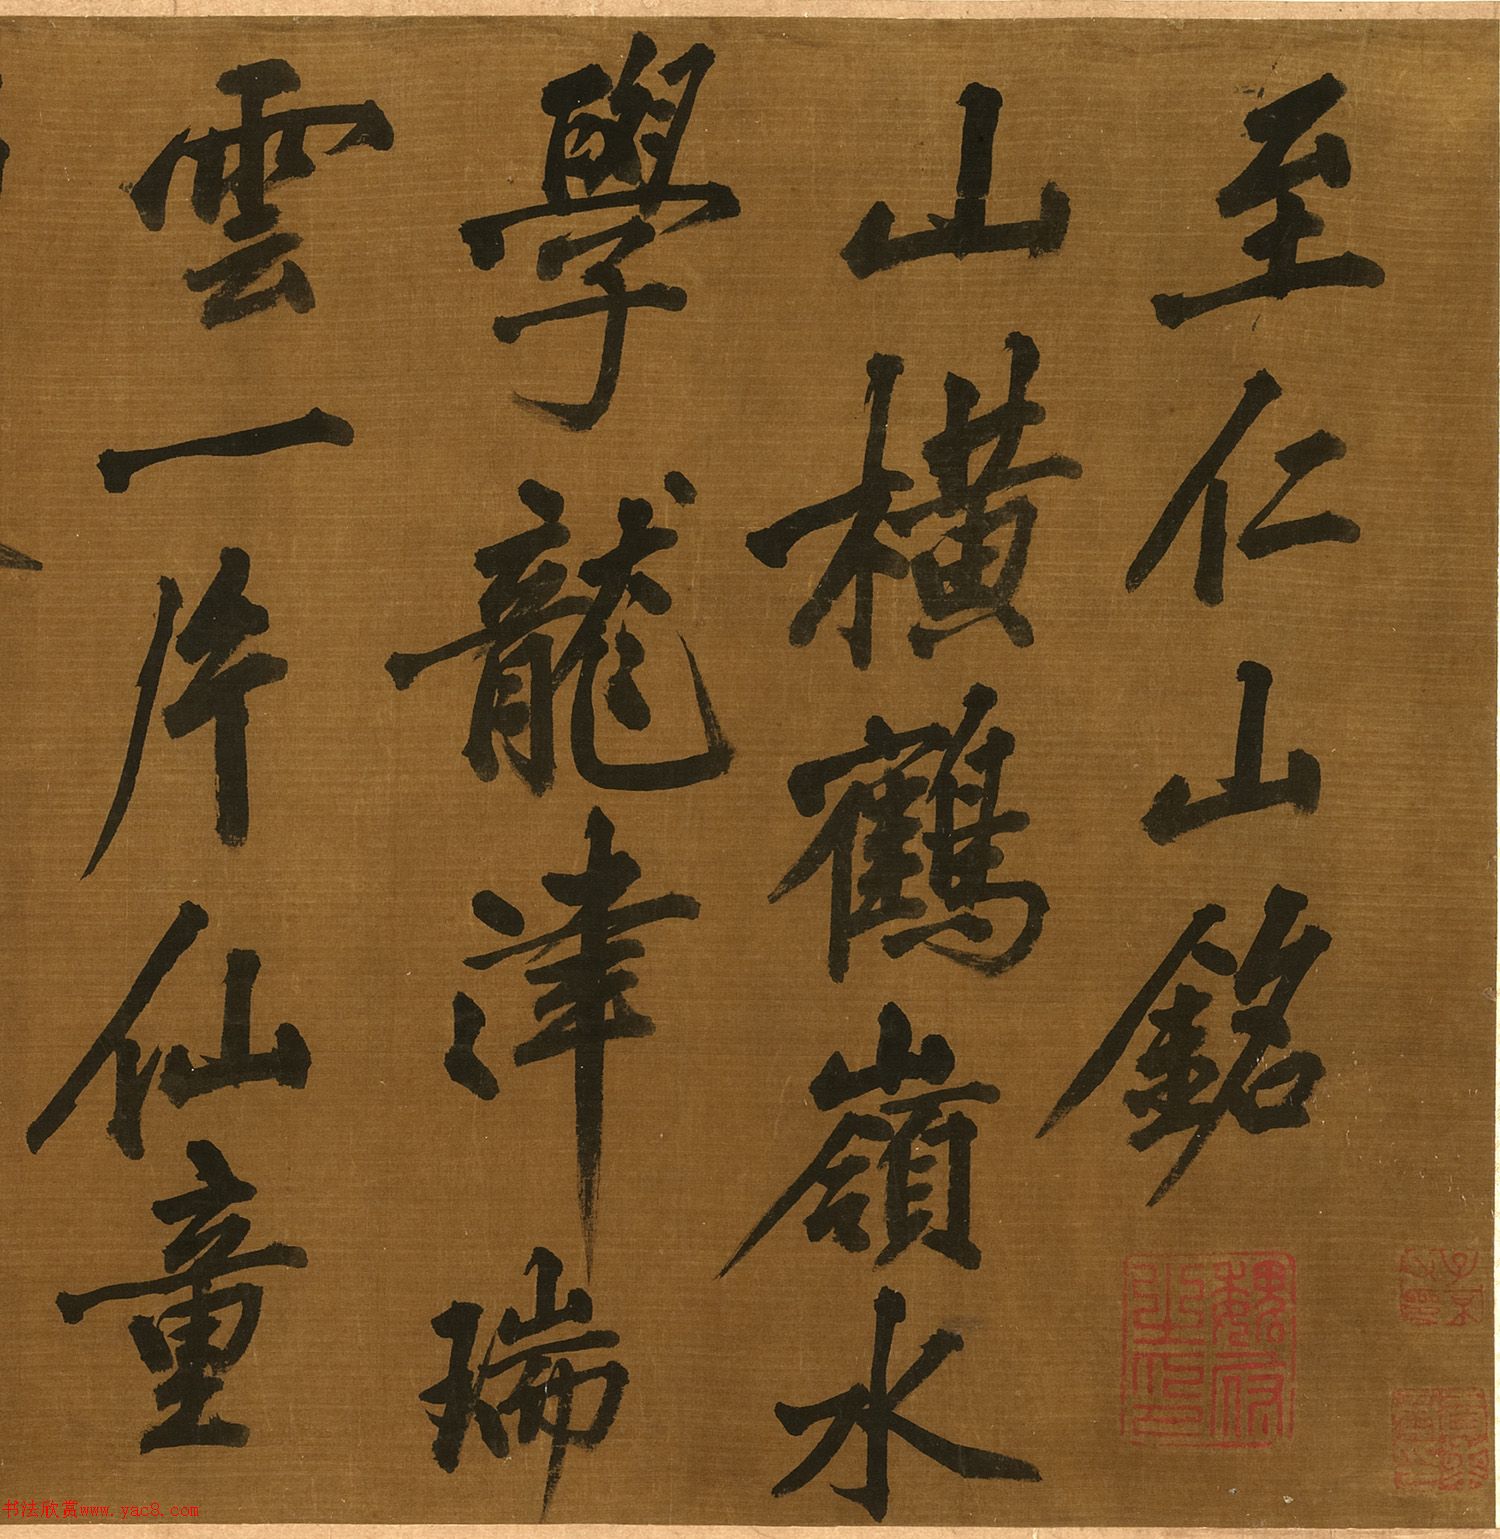 至仁山銘
山橫鶴嶺水
學龍津瑞
雲一片仙童
书法欣赏www.yac8.com